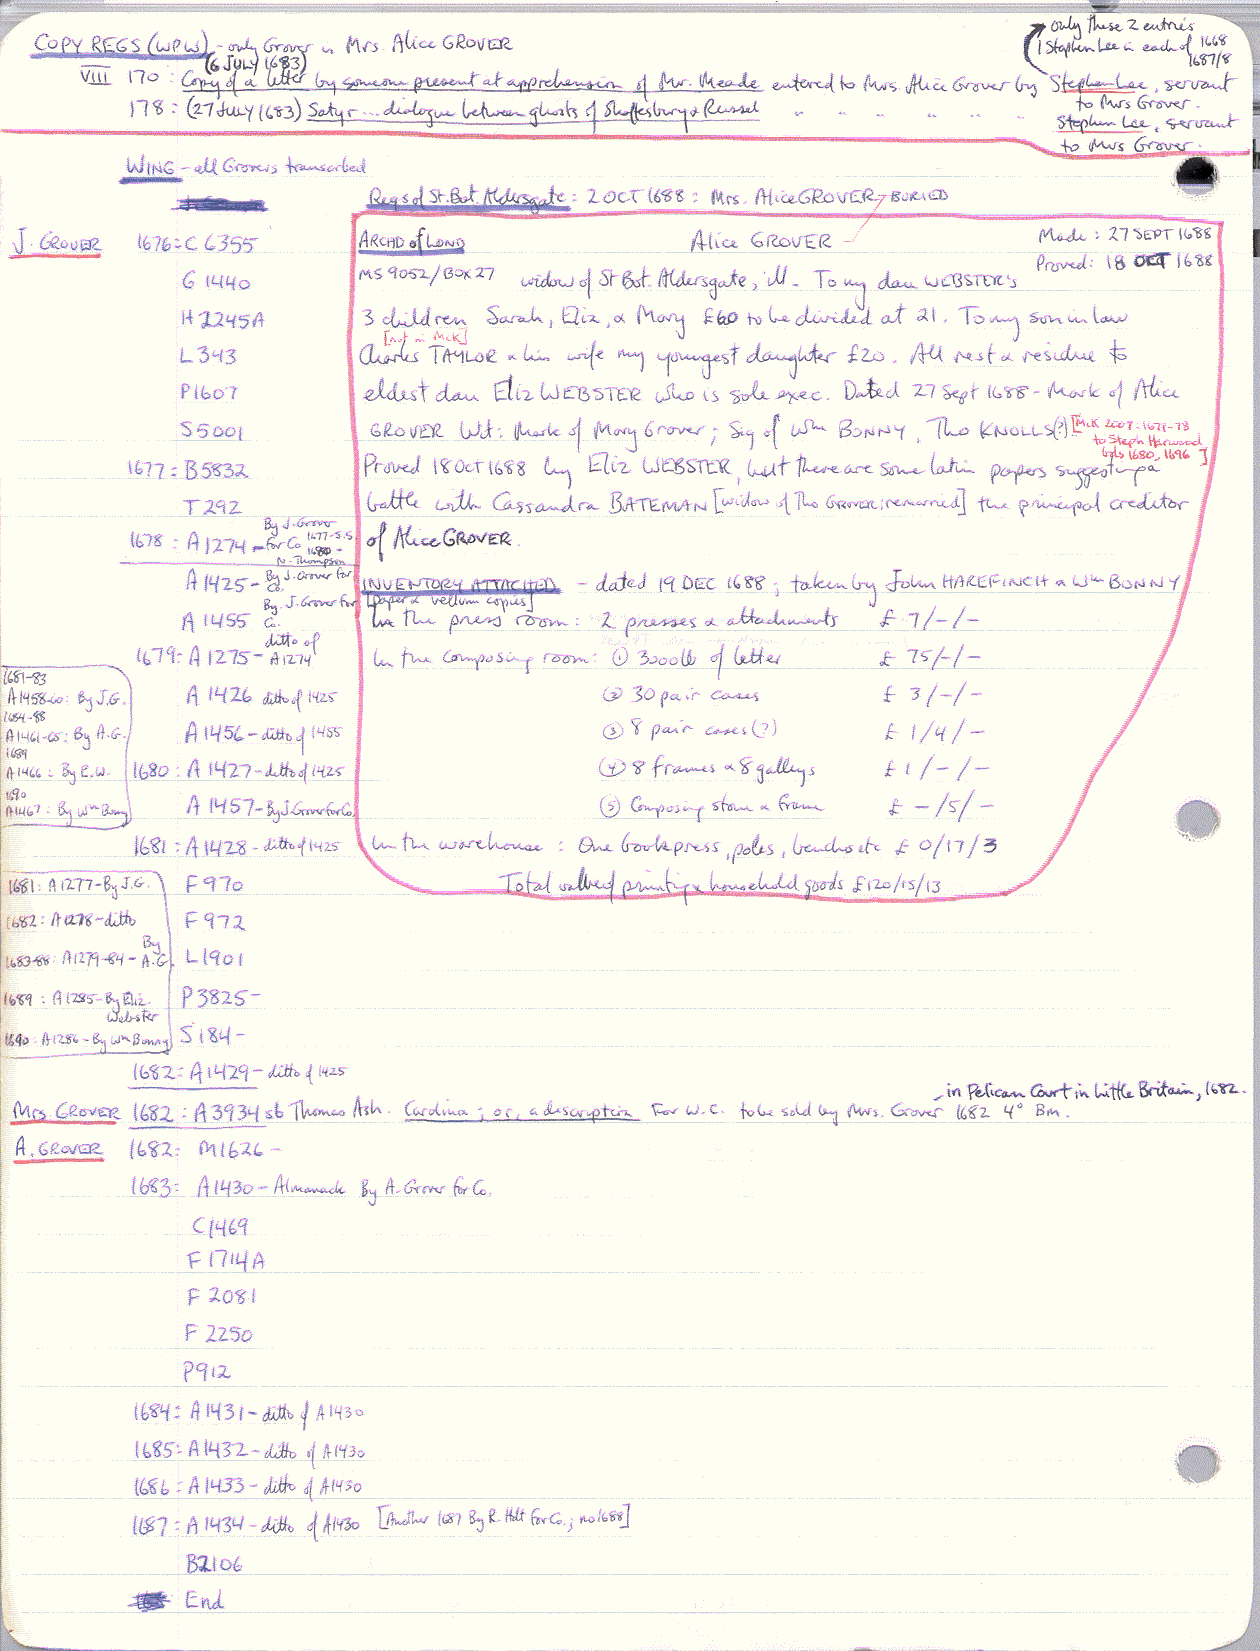 COPY REGS (WPW) - only Grover is Mrs. Alice GROVER
only these 2 entries
1 Stephen Lee in each of 1668
1687/8
(6 JULY 1683)
VIII 170: Copy of a letter by someone present at apprehension of Mr. Meade entered to Mrs. Alice Grover by Stephen Lee, servant
to Mrs Grover.
178: (27 JULY 1683) Satyr... dialogue between ghosts of Shaftesbury & Russel " " " " " " Stephen Lee, servant
to Mrs Grover.
WING - all Grovers transcribed
Regs of St. Bot. Aldersgate: 2 OCT 1688: Mrs. Alice GROVER - BURIED
J. GROVER 1676: C 6355
G 1440
H 2245A
L 343
P1607
S5001
1677: B5832
T 292
1678: A1274 - By J. Grover for Co 1677-S.S.
1680 - N. Thompson
A1425 - By J. Grover for Co.
A1455 By J. Grover for Co.
1679: A1275 - ditto of A1274
A1426 ditto of 1425
A1456 - ditto of 1455
1680: A1427 - ditto of 1425
A1457 - By J Grover for Co.
1681: A1428 - ditto of 1425
F970
F972
L1901
P3825 -
S184 -
1682: A1429 - ditto of 1425
1681-83
A1458-60: By J.G.
1684-88
A1461-65: By A.G.
1689
A1466: By E.W.
1690
A1467: By Wm Bonny
1681: A1277 - By J.G.
1682: A1278 - ditto
1683-88: A1279-84 - By A.G.
1689: A1285 - By Eliz. Webster
1690: A1286 - By Wm Bonny
ARCHD of LOND Alice GROVER Made: 27 SEPT 1688
Proved: 18 OCT 1688
MS 9052/BOX 27 widow of St Bot. Aldersgate, ill. To my dau WEBSTER's
3 children Sarah, Eliz, & Mary £60 to be divided at 21. To my son in law
[not in McK]
Charles TAYLOR & his wife my youngest daughter £20. All rest & residue to
eldest dau Eliz WEBSTER who is sole exec. Dated 27 Sept 1688 - Mark of Alice
GROVER Wit: Mark of Mary Grover; Sig of Wm BONNY, Tho KNOLLS(?) [McK 2007: 1671-78
to Steph Harwood
bds 1680, 1696]
Proved 18 Oct 1688 by Eliz WEBSTER, but there are some latin papers suggesting a
battle with Cassandra BATEMAN [widow of Tho GROVER; remarried] the principal creditor
of Alice GROVER.
INVENTORY ATTACHED - dated 19 DEC 1688; taken by John HAREFINCH & Wm BONNY
[paper & vellum copies]
In the press room: 2 presses & attachments £ 7/-/-
In the composing room: ① 3000lb of letter £ 75/-/-
② 30 pair cases £ 3/-/-
③ 8 pair cases (?) £ 1/4/-
④ 8 frames & 8 galleys £1/-/-
⑤ Composing stone & frame £ -/5/-
In the warehouse: One bookpress, poles, benches etc £ 0/17/3
Total value of printing & household goods £120/15/13
Mrs. GROVER 1682: A3934 sb Thomas Ash. Carolina; or, a description For W.C. to be sold by Mrs. Grover - in Pelican Court in Little Britain, 1682. 1682 4° Bm.
A. GROVER 1682: M1626 -
1683: A1430 - Almanack By A. Grover for Co.
C1469
F1714A
F2081
F2250
P912
1684: A1431 - ditto of A1430
1685: A1432 - ditto of A1430
1686: A1433 - ditto of A1430
1687: A1434 - ditto of A1430 [Another 1687 By R. Holt for Co.; no 1688]
B2106
End